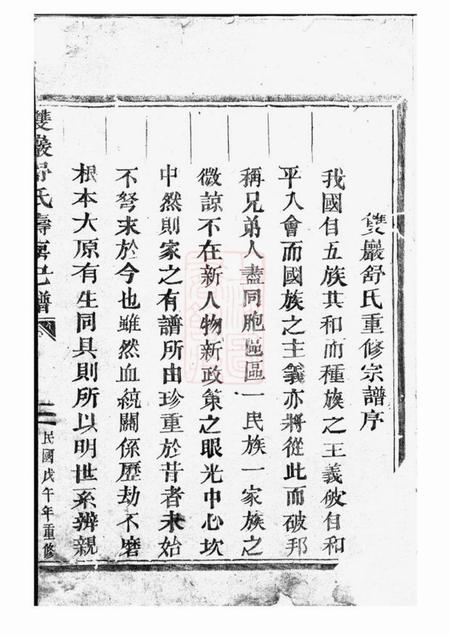 雙巖舒氏重修宗譜序
我國自五族共和而種族之主義破自和
平入會而國族之主義亦將從此而破邦
稱兄弟人盡同胞區區一民族一家族之
徵諒不在新人物新政策之眼光中心坎
中然則家之有譜所由珍重於昔者未始
不弩末於今也雖然血統關係歷劫不磨
根本大原有生同具則所以明世系辨親
雙巖舒氏壽房己譜
二
民國戊午年重修